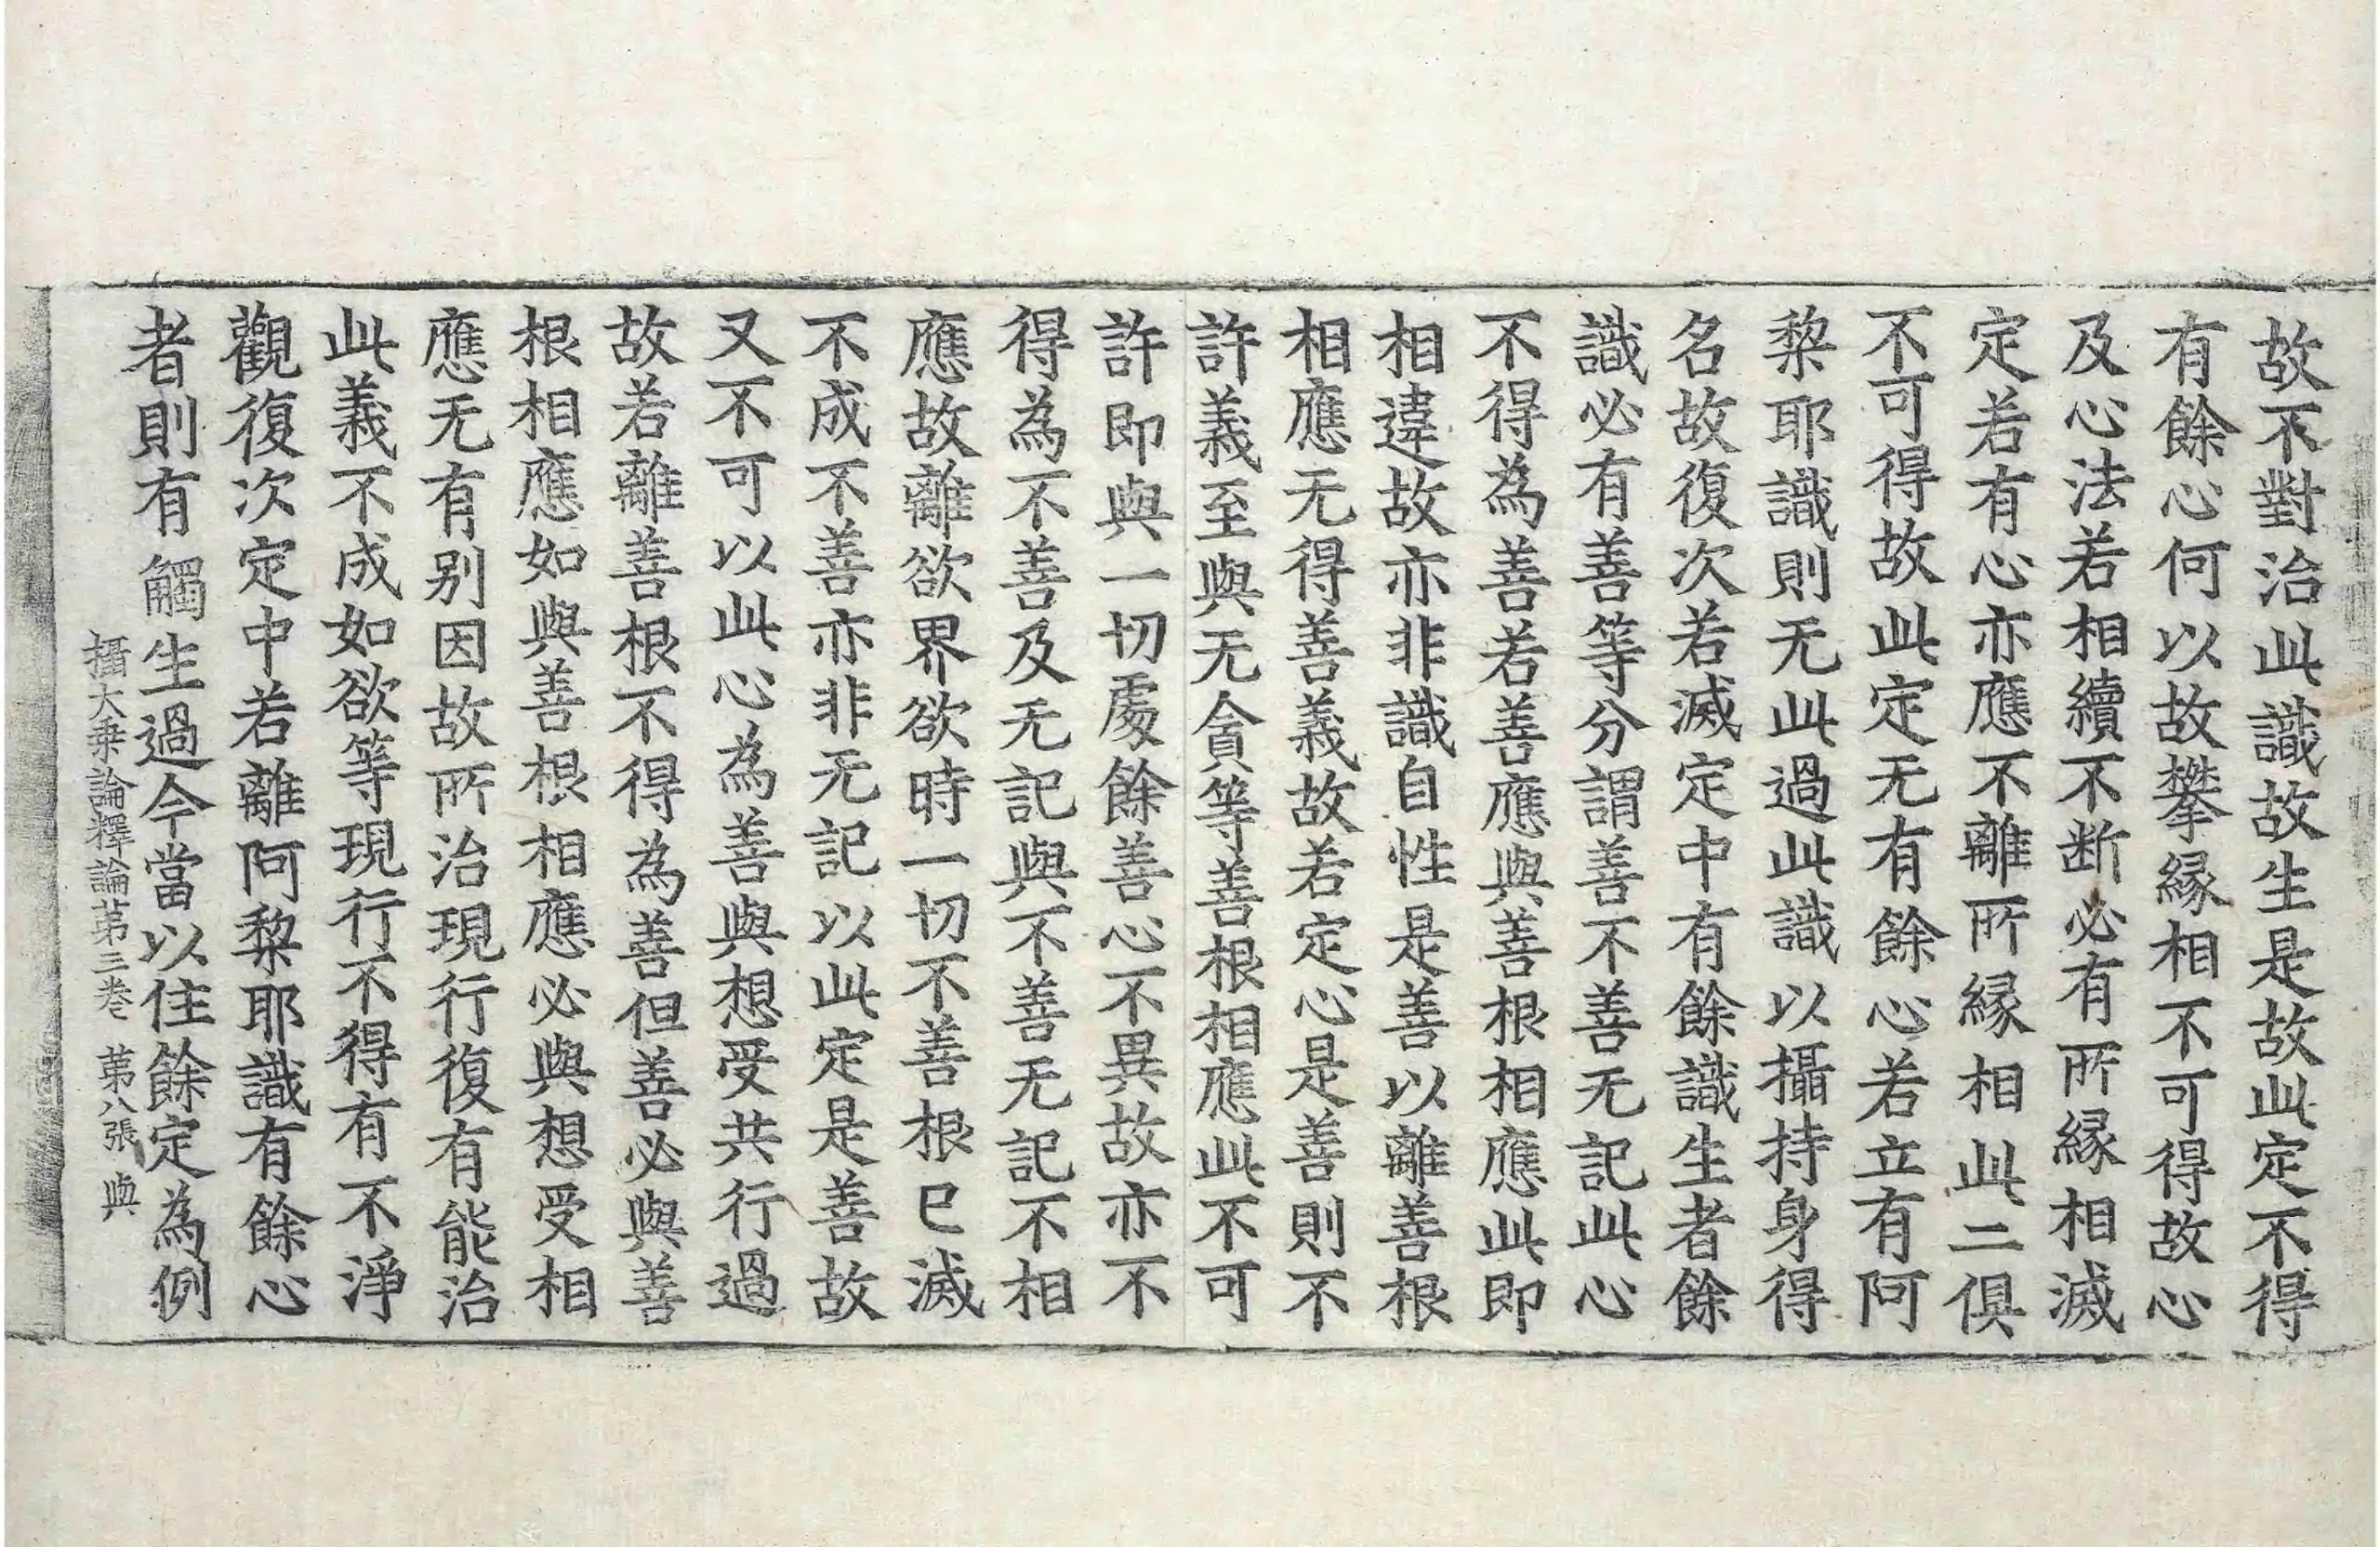 故不對治此識故生是故此定不得
有餘心何以故攀縁相不可得故心
及心法若相續不断必有所縁相滅
定若有心亦應不離所縁相此二俱
不可得故此定无有餘心若立有阿
棃耶識則无此過此識以攝持身得
名故復次若滅定中有餘識生者餘
識必有善等分謂善不善无記此心
不得為善若善應與善根相應此即
相違故亦非識自性是善以離善根
相應无得善義故若定心是善則不
許義至與无貪等善根相應此不可
許即與一切處餘善心不異故亦不
得為不善及无記與不善无記不相
應故離欲界欲時一切不善根已滅
不成不善亦非无記以此定是善故
又不可以此心為善與想受共行過
故若離善根不得為善但善必與善
根相應如與善根相應必與想受相
應无有别因故所治現行復有能治
此義不成如欲等現行不得有不淨
觀復次定中若離阿棃耶識有餘心
者則有觸生過今當以住餘定為例
攝大乗論釋論苐三卷 苐八張 與